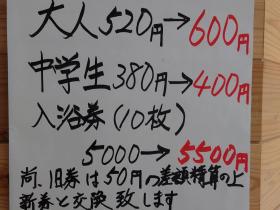 大人520円→600円
中学生380円→400円
入浴券(10枚)
5000→5500円
尚、旧券は50円の差額精算の上
新券と交換致します